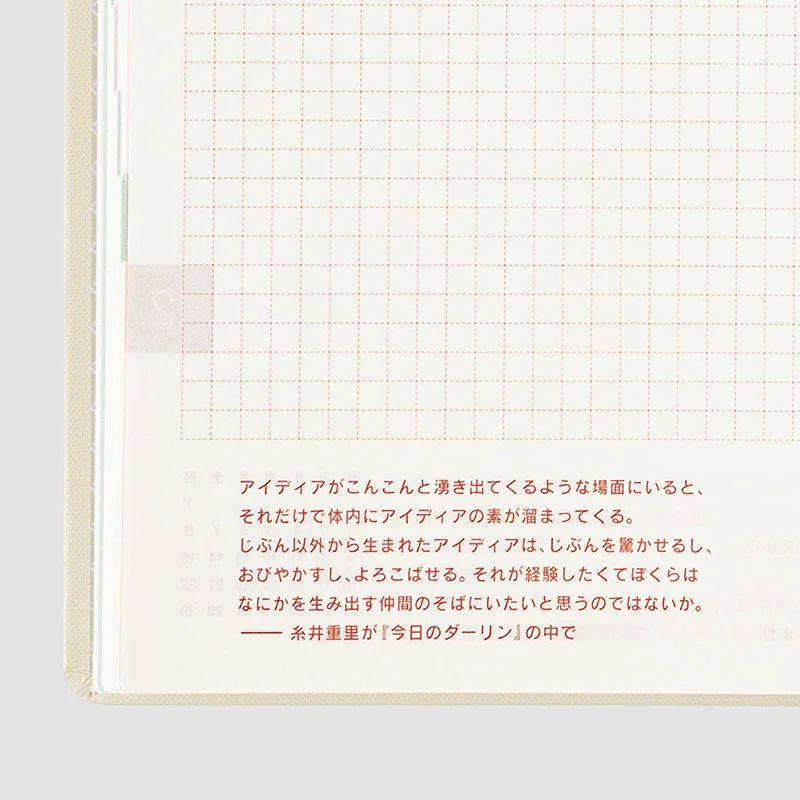 アイディアがこんこんと湧き出てくるような場面にいると、
それだけで体内にアイディアの素が溜まってくる。
じぶん以外から生まれたアイディアは、じぶんを驚かせるし、
おびやかすし、よろこばせる。それが経験したくてぼくらは
なにかを生み出す仲間のそばにいたいと思うのではないか。
―― 糸井重里が『今日のダーリン』の中で